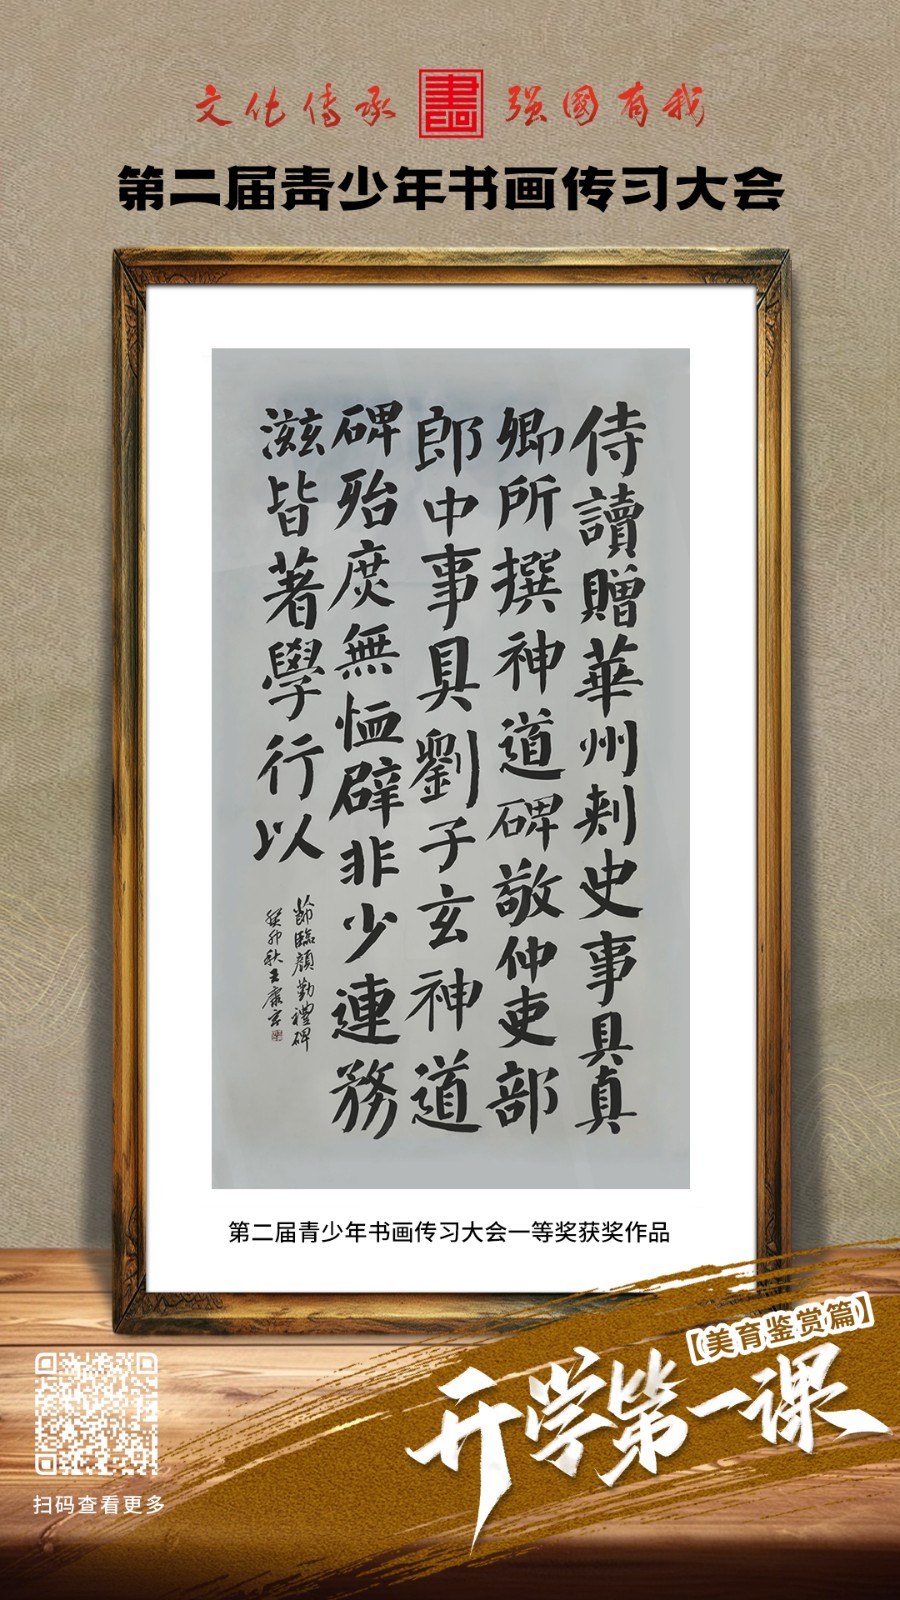 文化传承 書画 强國有我
第二届青少年书画传习大会
侍讀贈華州刾史事具真
卿所撰神道碑敬仲吏部
郎中事具劉子玄神道
碑殆庶無恤辟非少連務
滋皆著學行以
節臨顔勤禮碑
癸卯秋王康
第二届青少年书画传习大会一等奖获奖作品
【美育鉴赏篇】
开学第一课
扫码查看更多